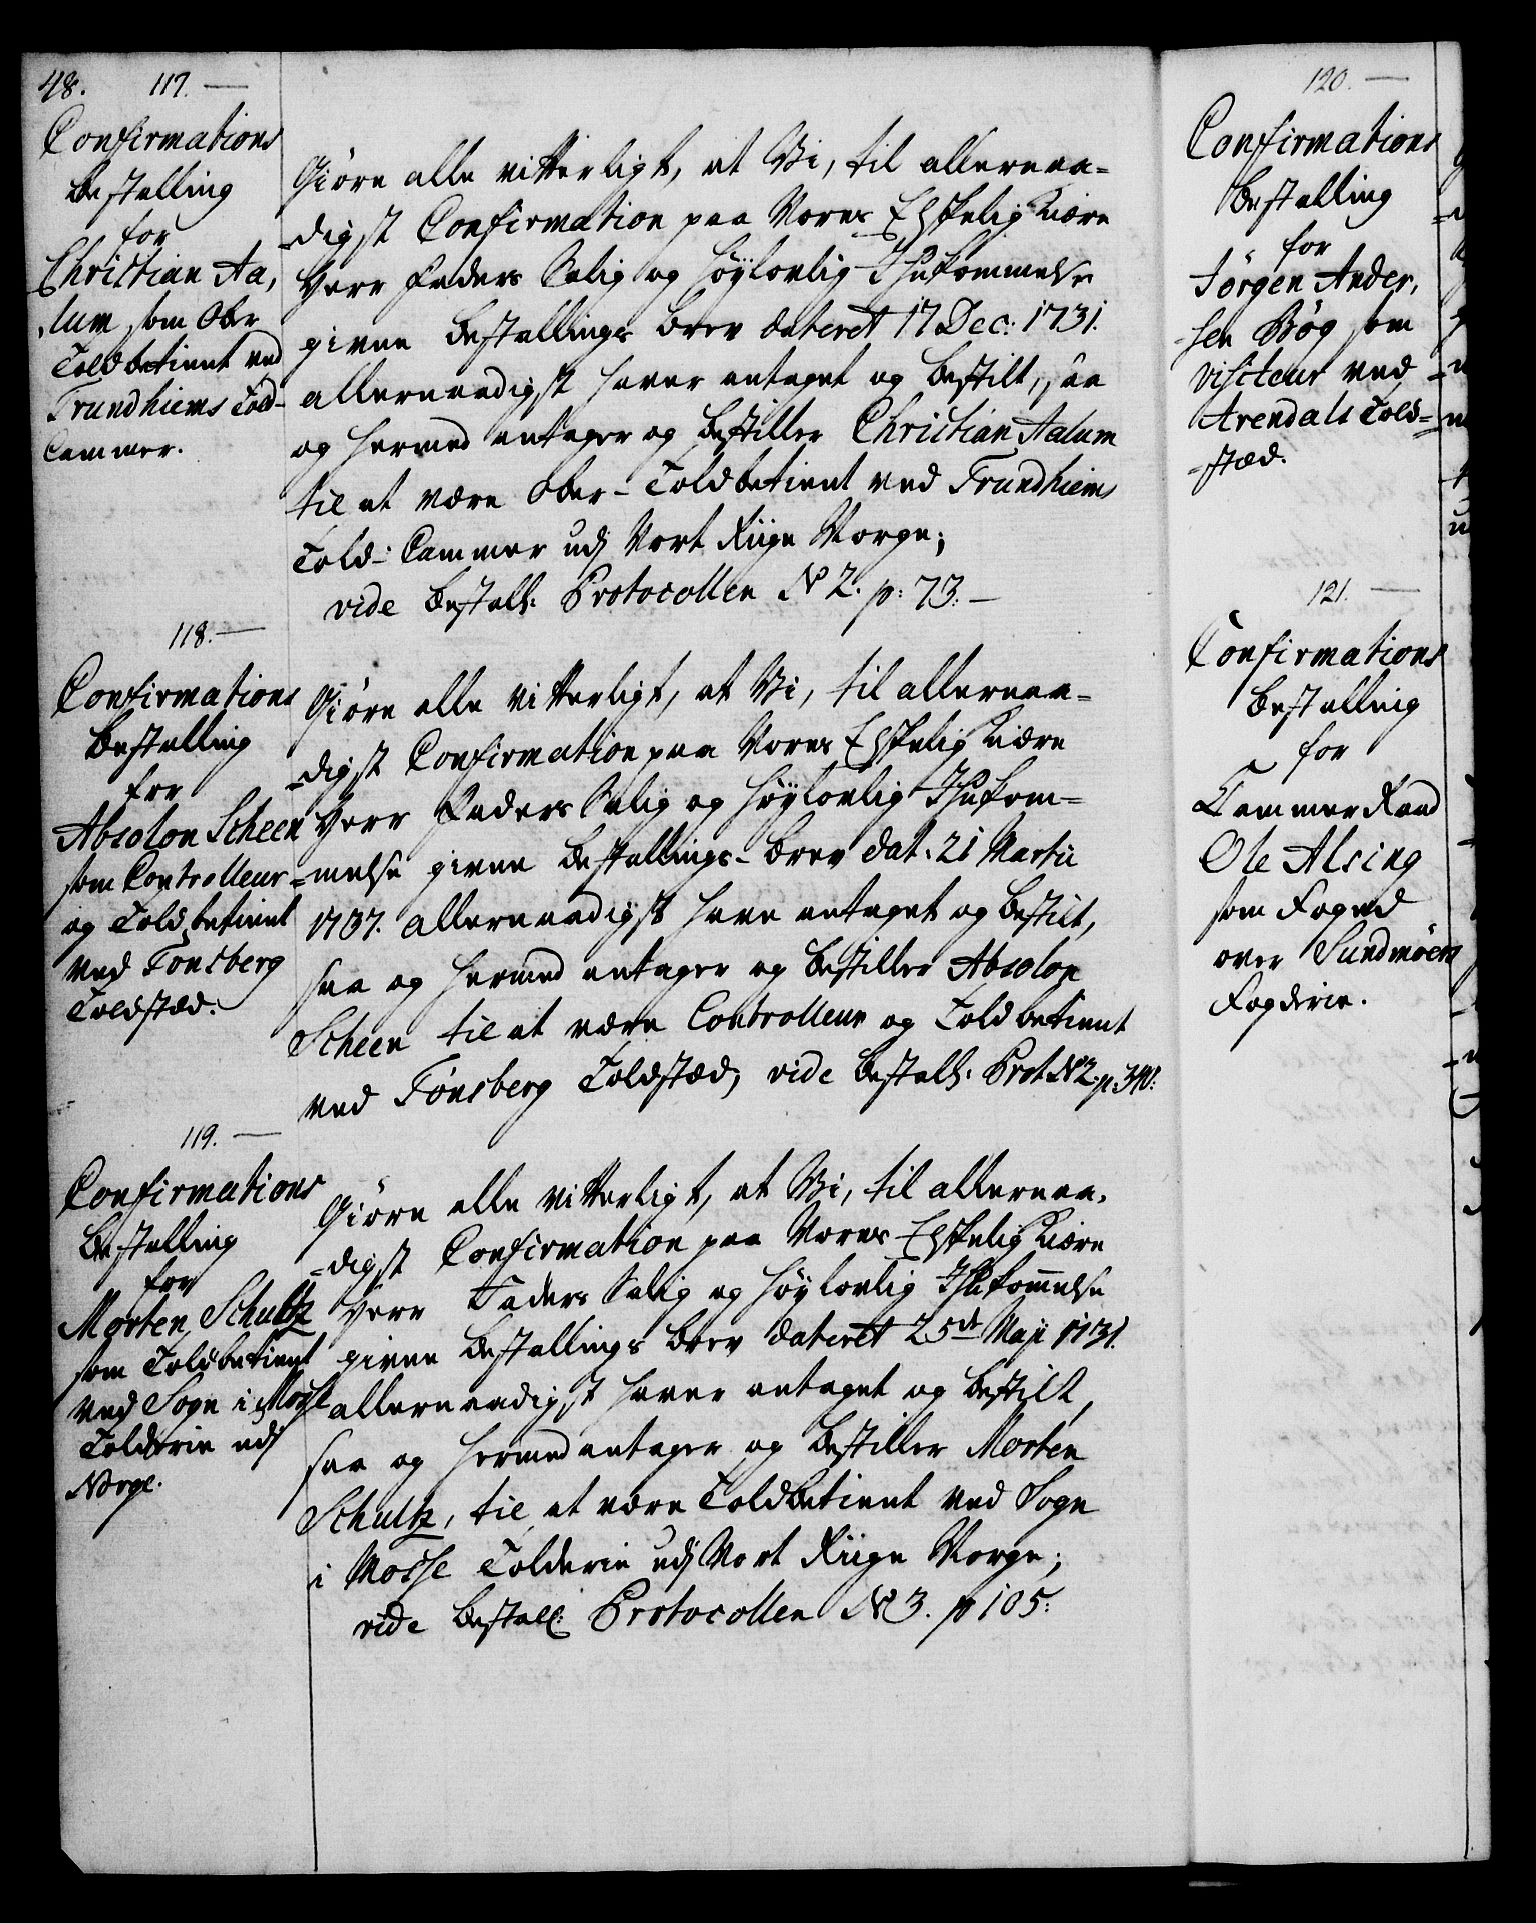 48. 117. —
Confirmations
Bestalling
for
Christian Aa,
lum som Ober
Toldbetient ved
Trundhiems Told-
Cammer.
Giöre alle vitterligt, at Vi, til allernaa-
-digst Confirmation paa Vores Elskelig Kiære
Herr Faders Salig og Höÿlovlig Ihukommelse
givne Bestallings brev dateret 17 Dec: 1731.
allernaadigst haver antaget og bestilt, saa
og hermed antager og bestiller Christian Aalum
til at være Ober-Toldbetient ved Trundhiems
Told-Cammer udj Vort Riige Norge;
vide Bestall: Protocollen No 2. p: 73. —
118. —
Confirmations
Bestalling
for
Absolon Scheen
som Controlleur
og Toldbetient
ved Tonsberg
Toldstæd.
Giöre alle vitterligt, at Vi, til allernaa-
-digst Confirmation paa Vores Elskelig Kiære
Herr Faders Salig og Höÿlovlig Ihukom-
-melse givne Bestallings-brev dat: 21 Martii
1737. allernaadigst have antaget og bestilt,
saa og hermed antager og bestiller Absolon
Scheen til at være Controlleur og Toldbetient
ved Tönsberg Toldstæd; vide Bestall: Prot. No 2. p. 340:
119. —
Confirmations
Bestalling
for
Morten Schultz
som Toldbetient
ved Sogn i Mosse
Tolderie udj
Norge.
Giöre alle vitterligt, at Vi, til allernaa-
-digst Confirmation paa Vores Elskelig Kiære
Herr Faders Salig og Höÿlovlig Ihukommelse
givne Bestallings brev dateret 25de Maji 1731.
allernaadigst haver antaget og bestilt,
saa og hermed antager og bestiller Morten
Schultz, til at være Toldbetient ved Sogn
i Mosse Tolderie udj Vort Riige Norge;
vide Bestall: Protocollen No 3. p 105:
120. —
Confirmations
Bestalling
for
Jörgen Ander,
-sen Bög som
Visiteur ved
Arendals Told-
-stæd.
121. —
Confirmations
Bestalling
for
Cammer Raad
Ole Alsing
som Foged
over Sundmöers
Fogderie.